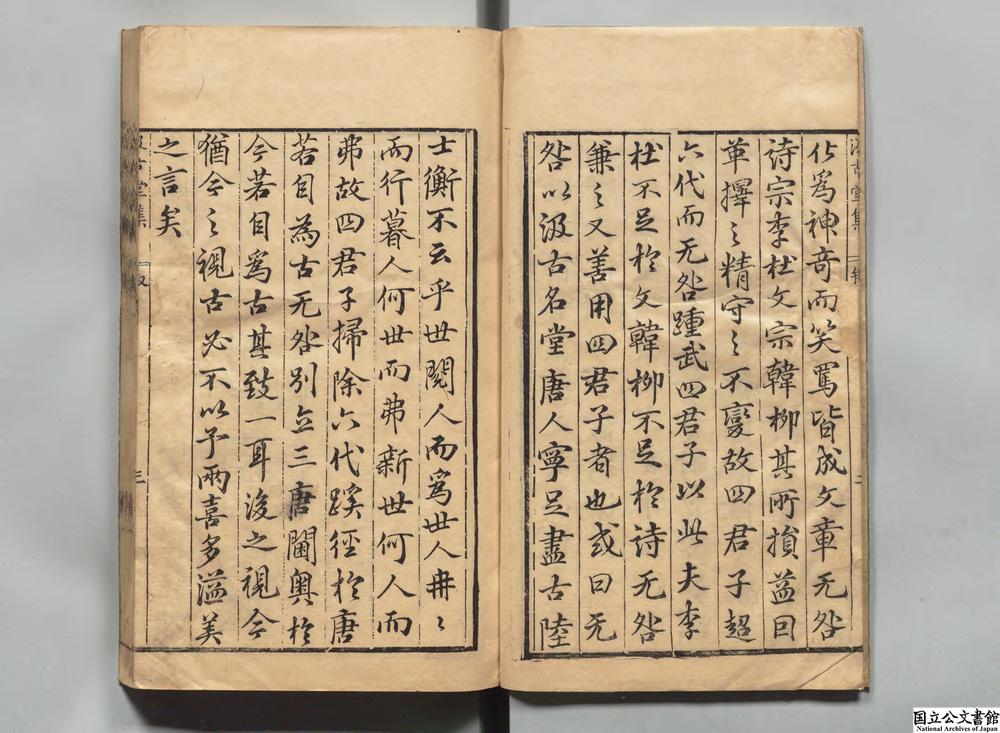 汲古堂集 二
化爲神奇而笑罵皆成文章无咎
詩宗李杜文宗韓柳其所損益因
革擇之精守之不變故四君子超
六代而无咎踵武四君子以此夫李
杜不足於文韓柳不足於詩无咎
兼之又善用四君子者也或曰无
咎以汲古名堂唐人寧足盡古陸
士衡不云乎世閱人而爲世人冉〻
而行暮人何世而弗新世何人而
弗故四君子掃除六代蹊徑於唐
若自為古无咎別立三唐閫奧於
今若自爲古其致一耳後之視今
猶今之視古必不以予兩喜多溢美
之言矣
汲古堂集 三
国立公文書館
National Archives of Japan